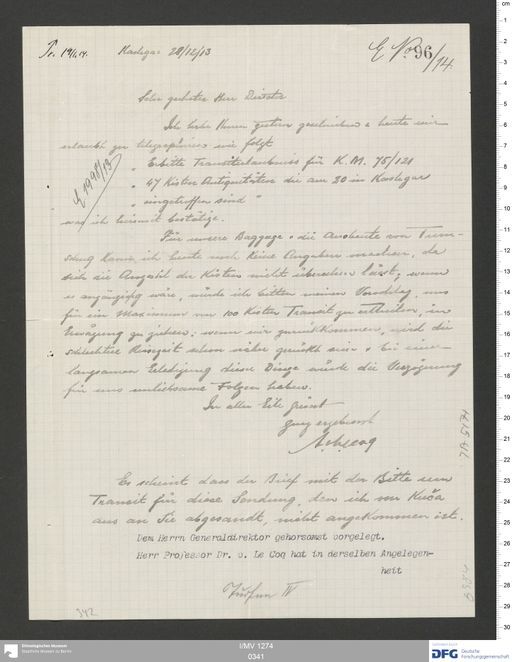 Pr. 19/1.14. Kashgar 28/12/13 E No 96/14.
Sehr geehrter Herr Direktor
Ich habe Ihnen gestern geschrieben & heute mir
erlaubt zu telegraphieren wie folgt
" Erbitte Transiterlaubniss für K. M. 75/121
" 47 Kisten Antiquitäten die am 20 in Kashgar
" eingetroffen sind "
was ich hiermit bestätige.
E 1998/13
Für unsere Baggage & die Ausbeute von Tum-
schug kann ich heute noch keine Angaben machen, da
sich die Anzahl der Kisten nicht übersehen lässt; wenn
es angängig wäre, würde ich bitten meinen Vorschlag, uns
für ein Maximum von 100 Kisten Transit zu erbitten, in
Erwägung zu ziehen; wenn wir zurückkommen, wird die
schlechte Reisezeit schon näher gerückt sein & bei einer
langsamen Erledigung dieser Dinge würde die Verzögerung
für uns unliebsame Folgen haben.
In aller Eile grüsst
ganz ergebenst
A. v. Lecoq
Es scheint dass der Brief mit der Bitte um
Transit für diese Sendung, den ich von Kuča
aus an Sie abgesandt, nicht angekommen ist.
Dem Herrn Generaldirektor gehorsamst vorgelegt.
Herr Professor Dr. v. Le Coq hat in derselben Angelegen-
heit
Turfan IV
342
Ethnologisches Museum
Staatliche Museen zu Berlin
I/MV 1274
0341
DFG Deutsche
Forschungsgemeinschaft